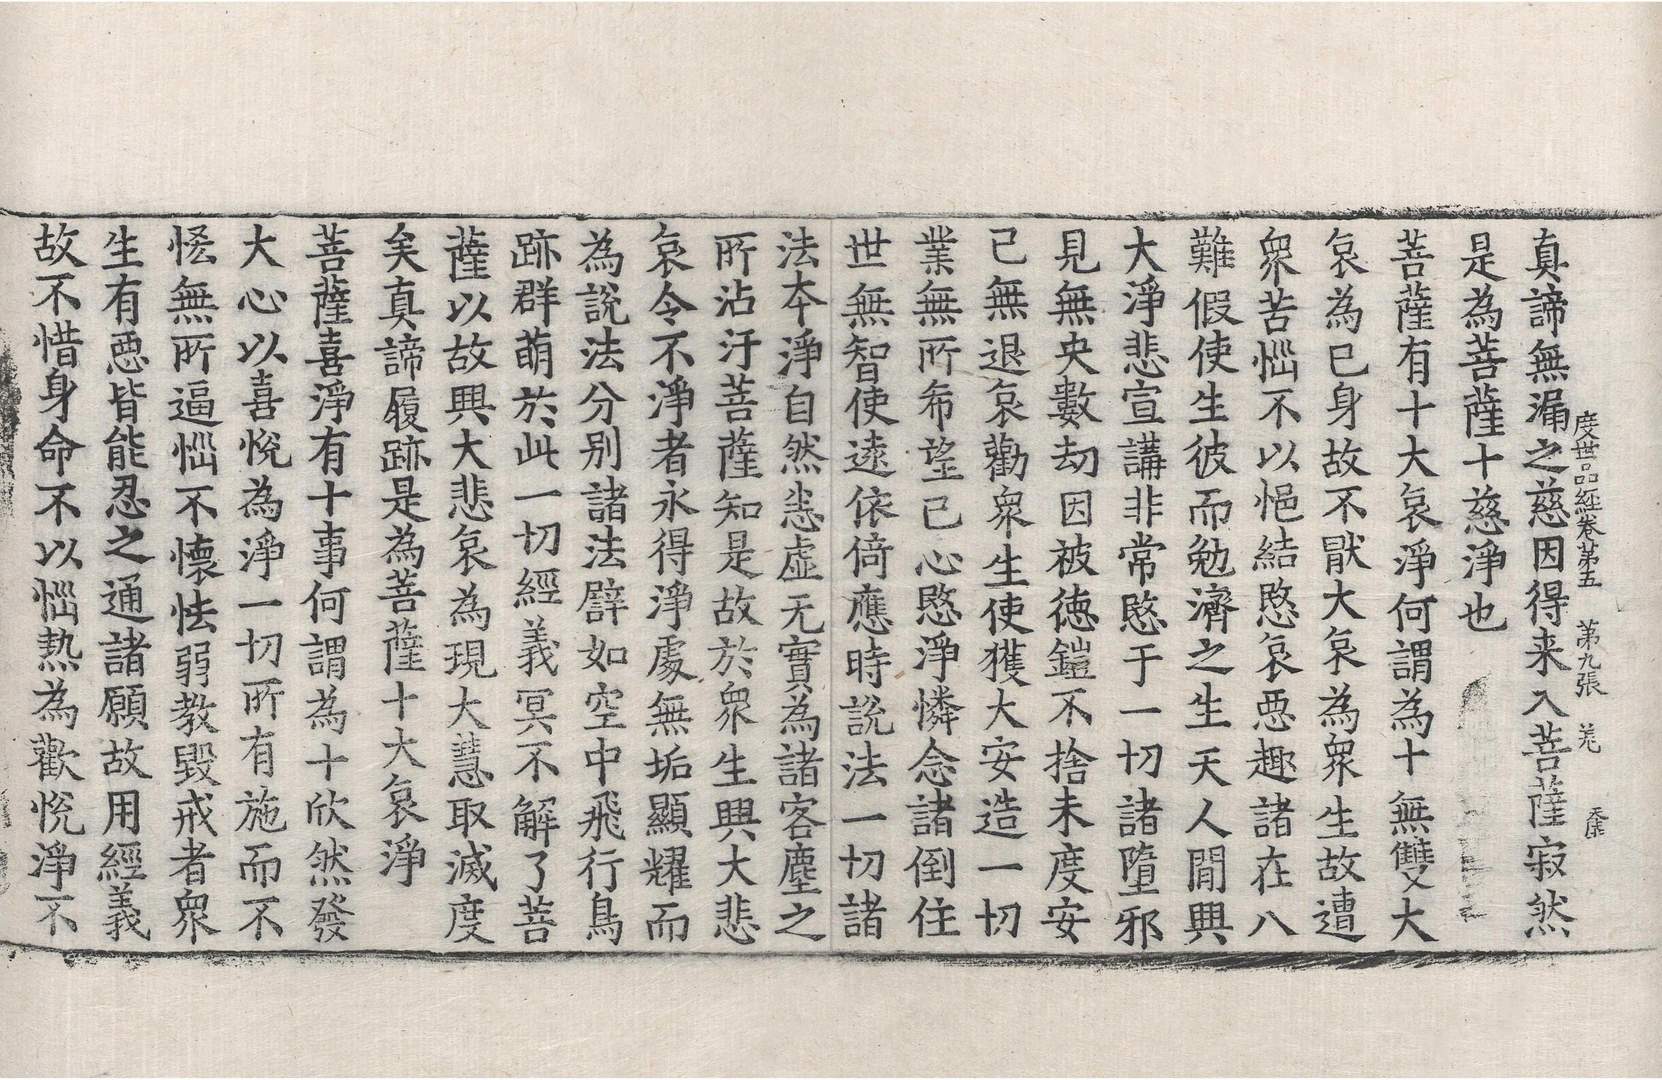 度世品經卷第五　第九張　羌
真諦無漏之慈因得来入菩薩寂然
是為菩薩十慈淨也
菩薩有十大哀淨何謂為十無雙大
哀為己身故不猒大哀為衆生故遭
衆苦惱不以悒結愍哀惡趣諸在八
難假使生彼而勉濟之生天人間興
大淨悲宣講非常愍于一切諸墮邪
見無央數劫因被德鎧不捨未度安
己無退哀勸衆生使獲大安造一切
業無所希望己心愍淨憐念諸倒住
世無智使遠依倚應時說法一切諸
法本淨自然恙虛无實為諸客塵之
所沾汙菩薩知是故於衆生興大悲
哀令不淨者永得淨處無垢顯耀而
為說法分別諸法譬如空中飛行鳥
跡群萌於此一切經義冥不解了菩
薩以故興大悲哀為現大慧取滅度
矣真諦履跡是為菩薩十大哀淨
菩薩喜淨有十事何謂為十欣然發
大心以喜悅為淨一切所有施而不
悋無所逼惱不懷怯弱教毀戒者衆
生有惡皆能忍之通諸願故用經義
故不惜身命不以惱熱為歡悅淨不